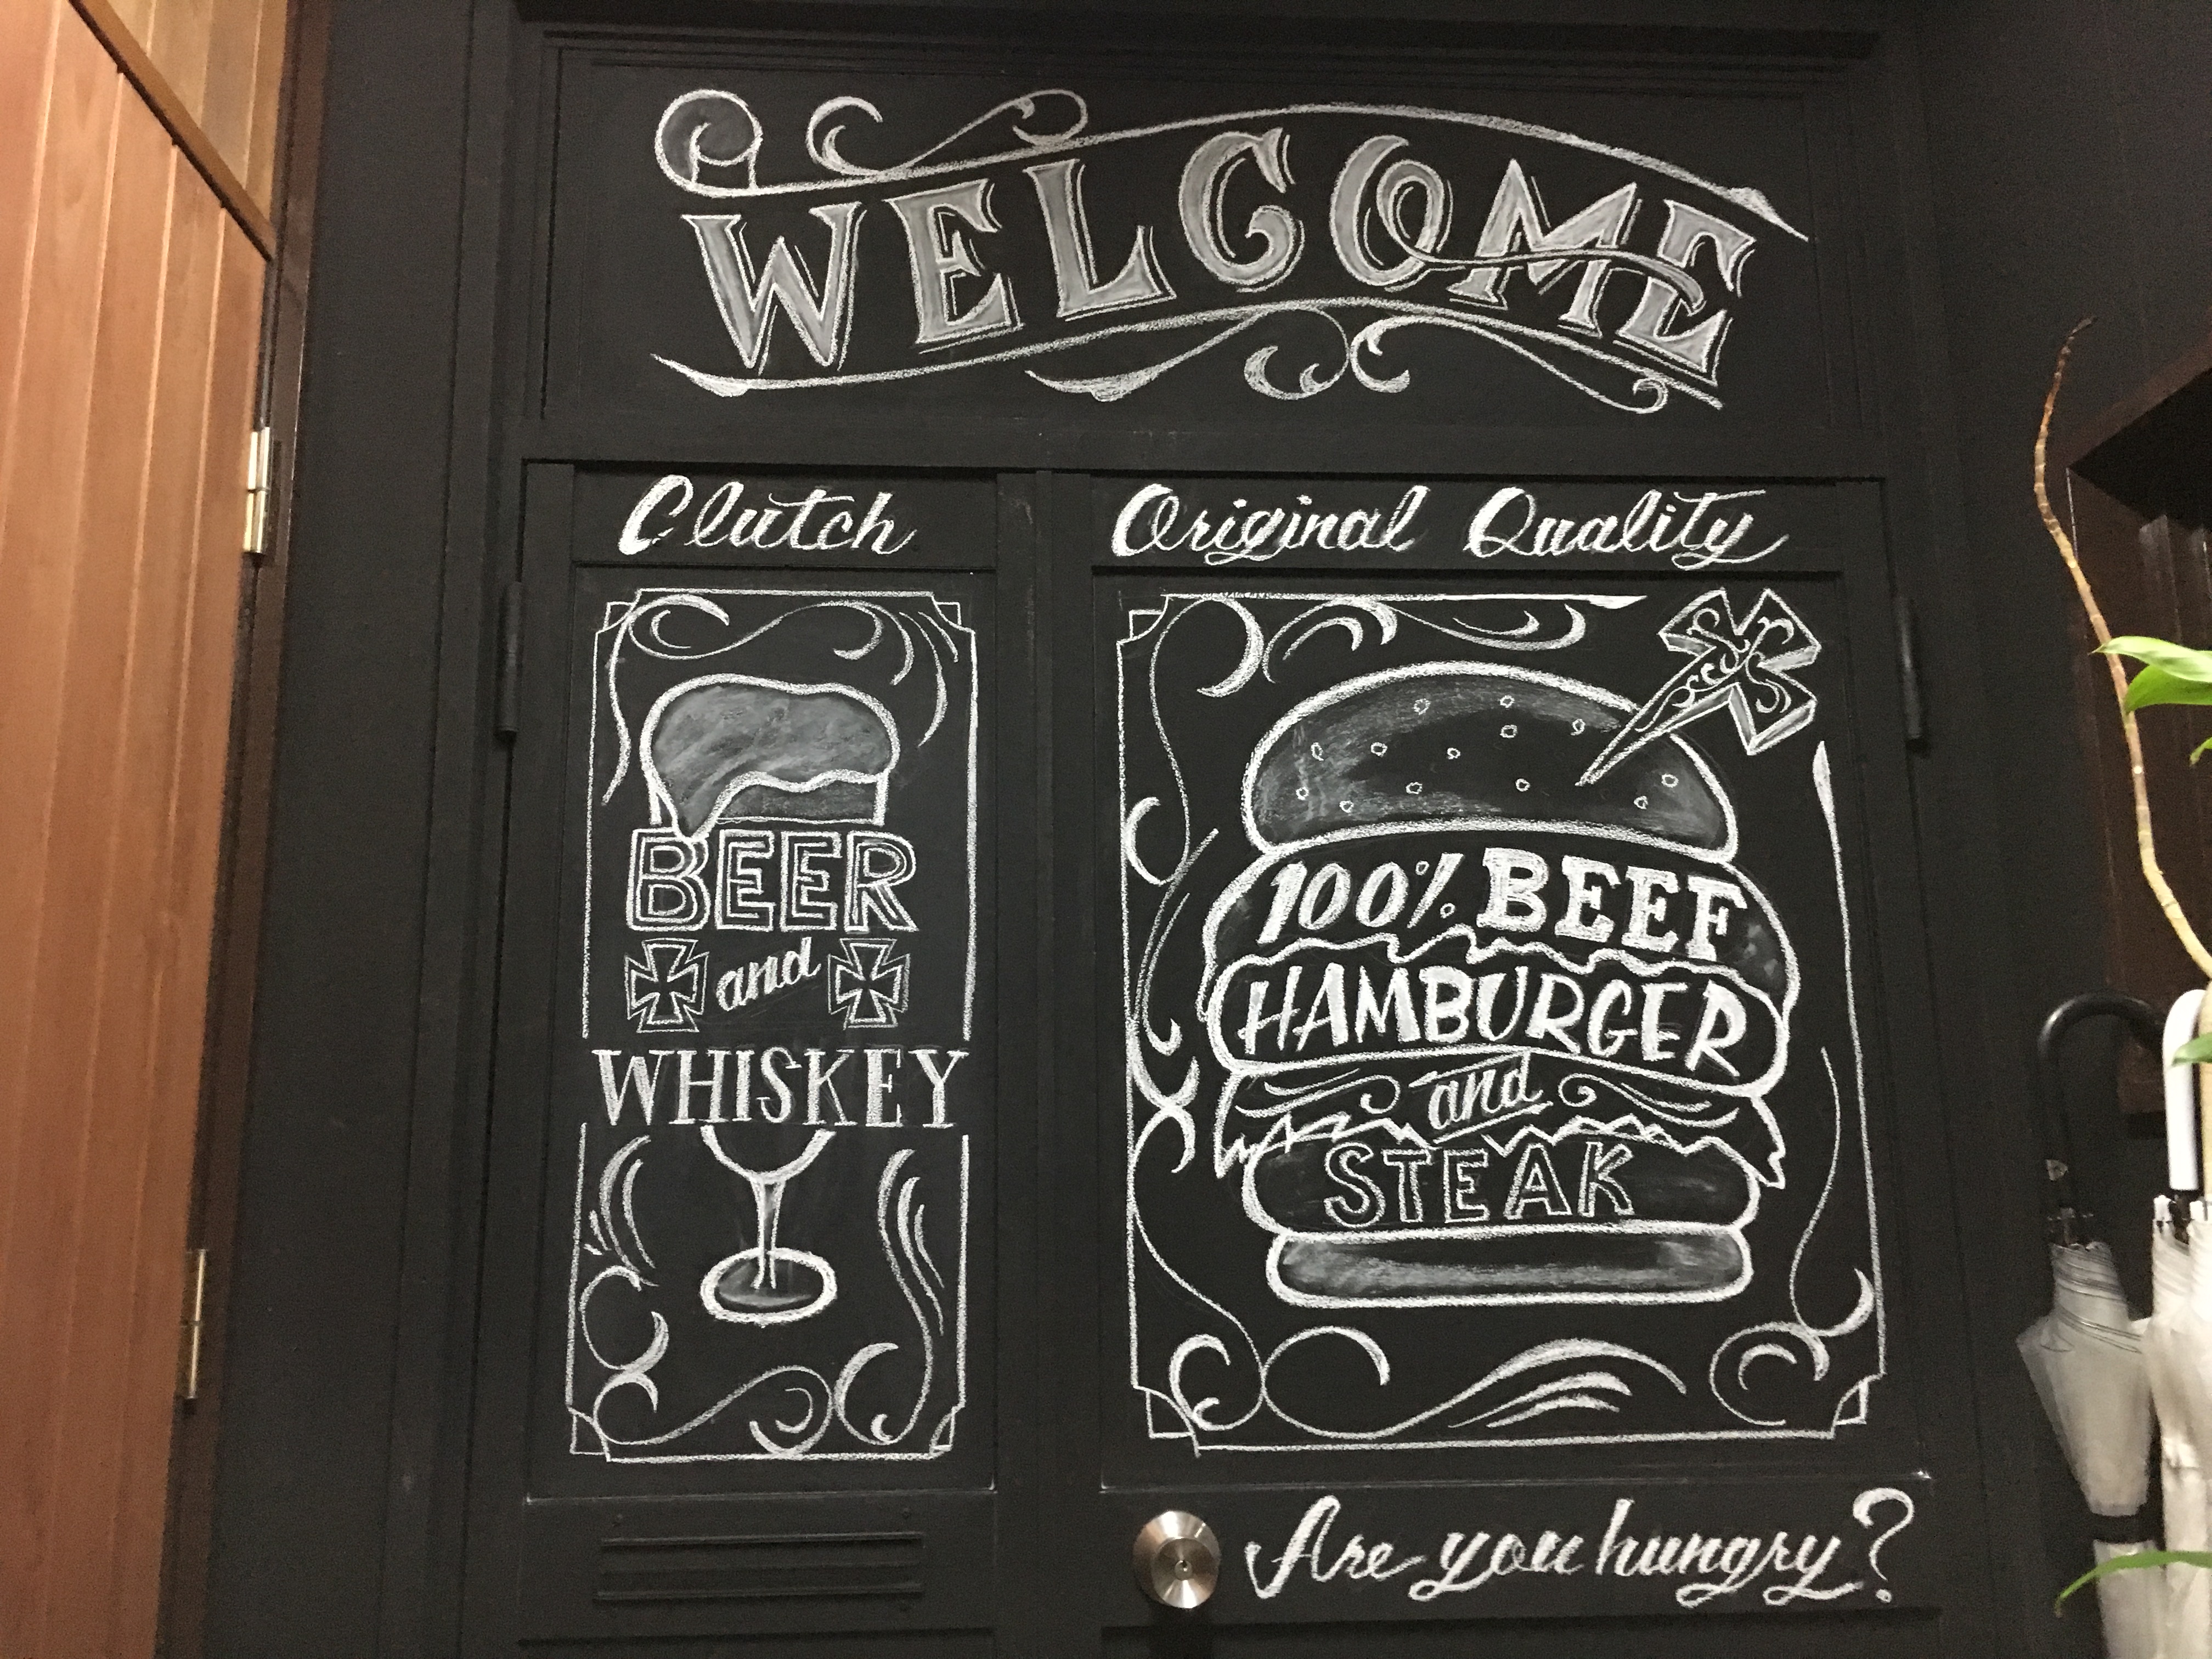 WELCOME
Clutch
BEER
and
WHISKEY
Original Quality
100% BEEF
HAMBURGER
and
STEAK
Are you hungry?